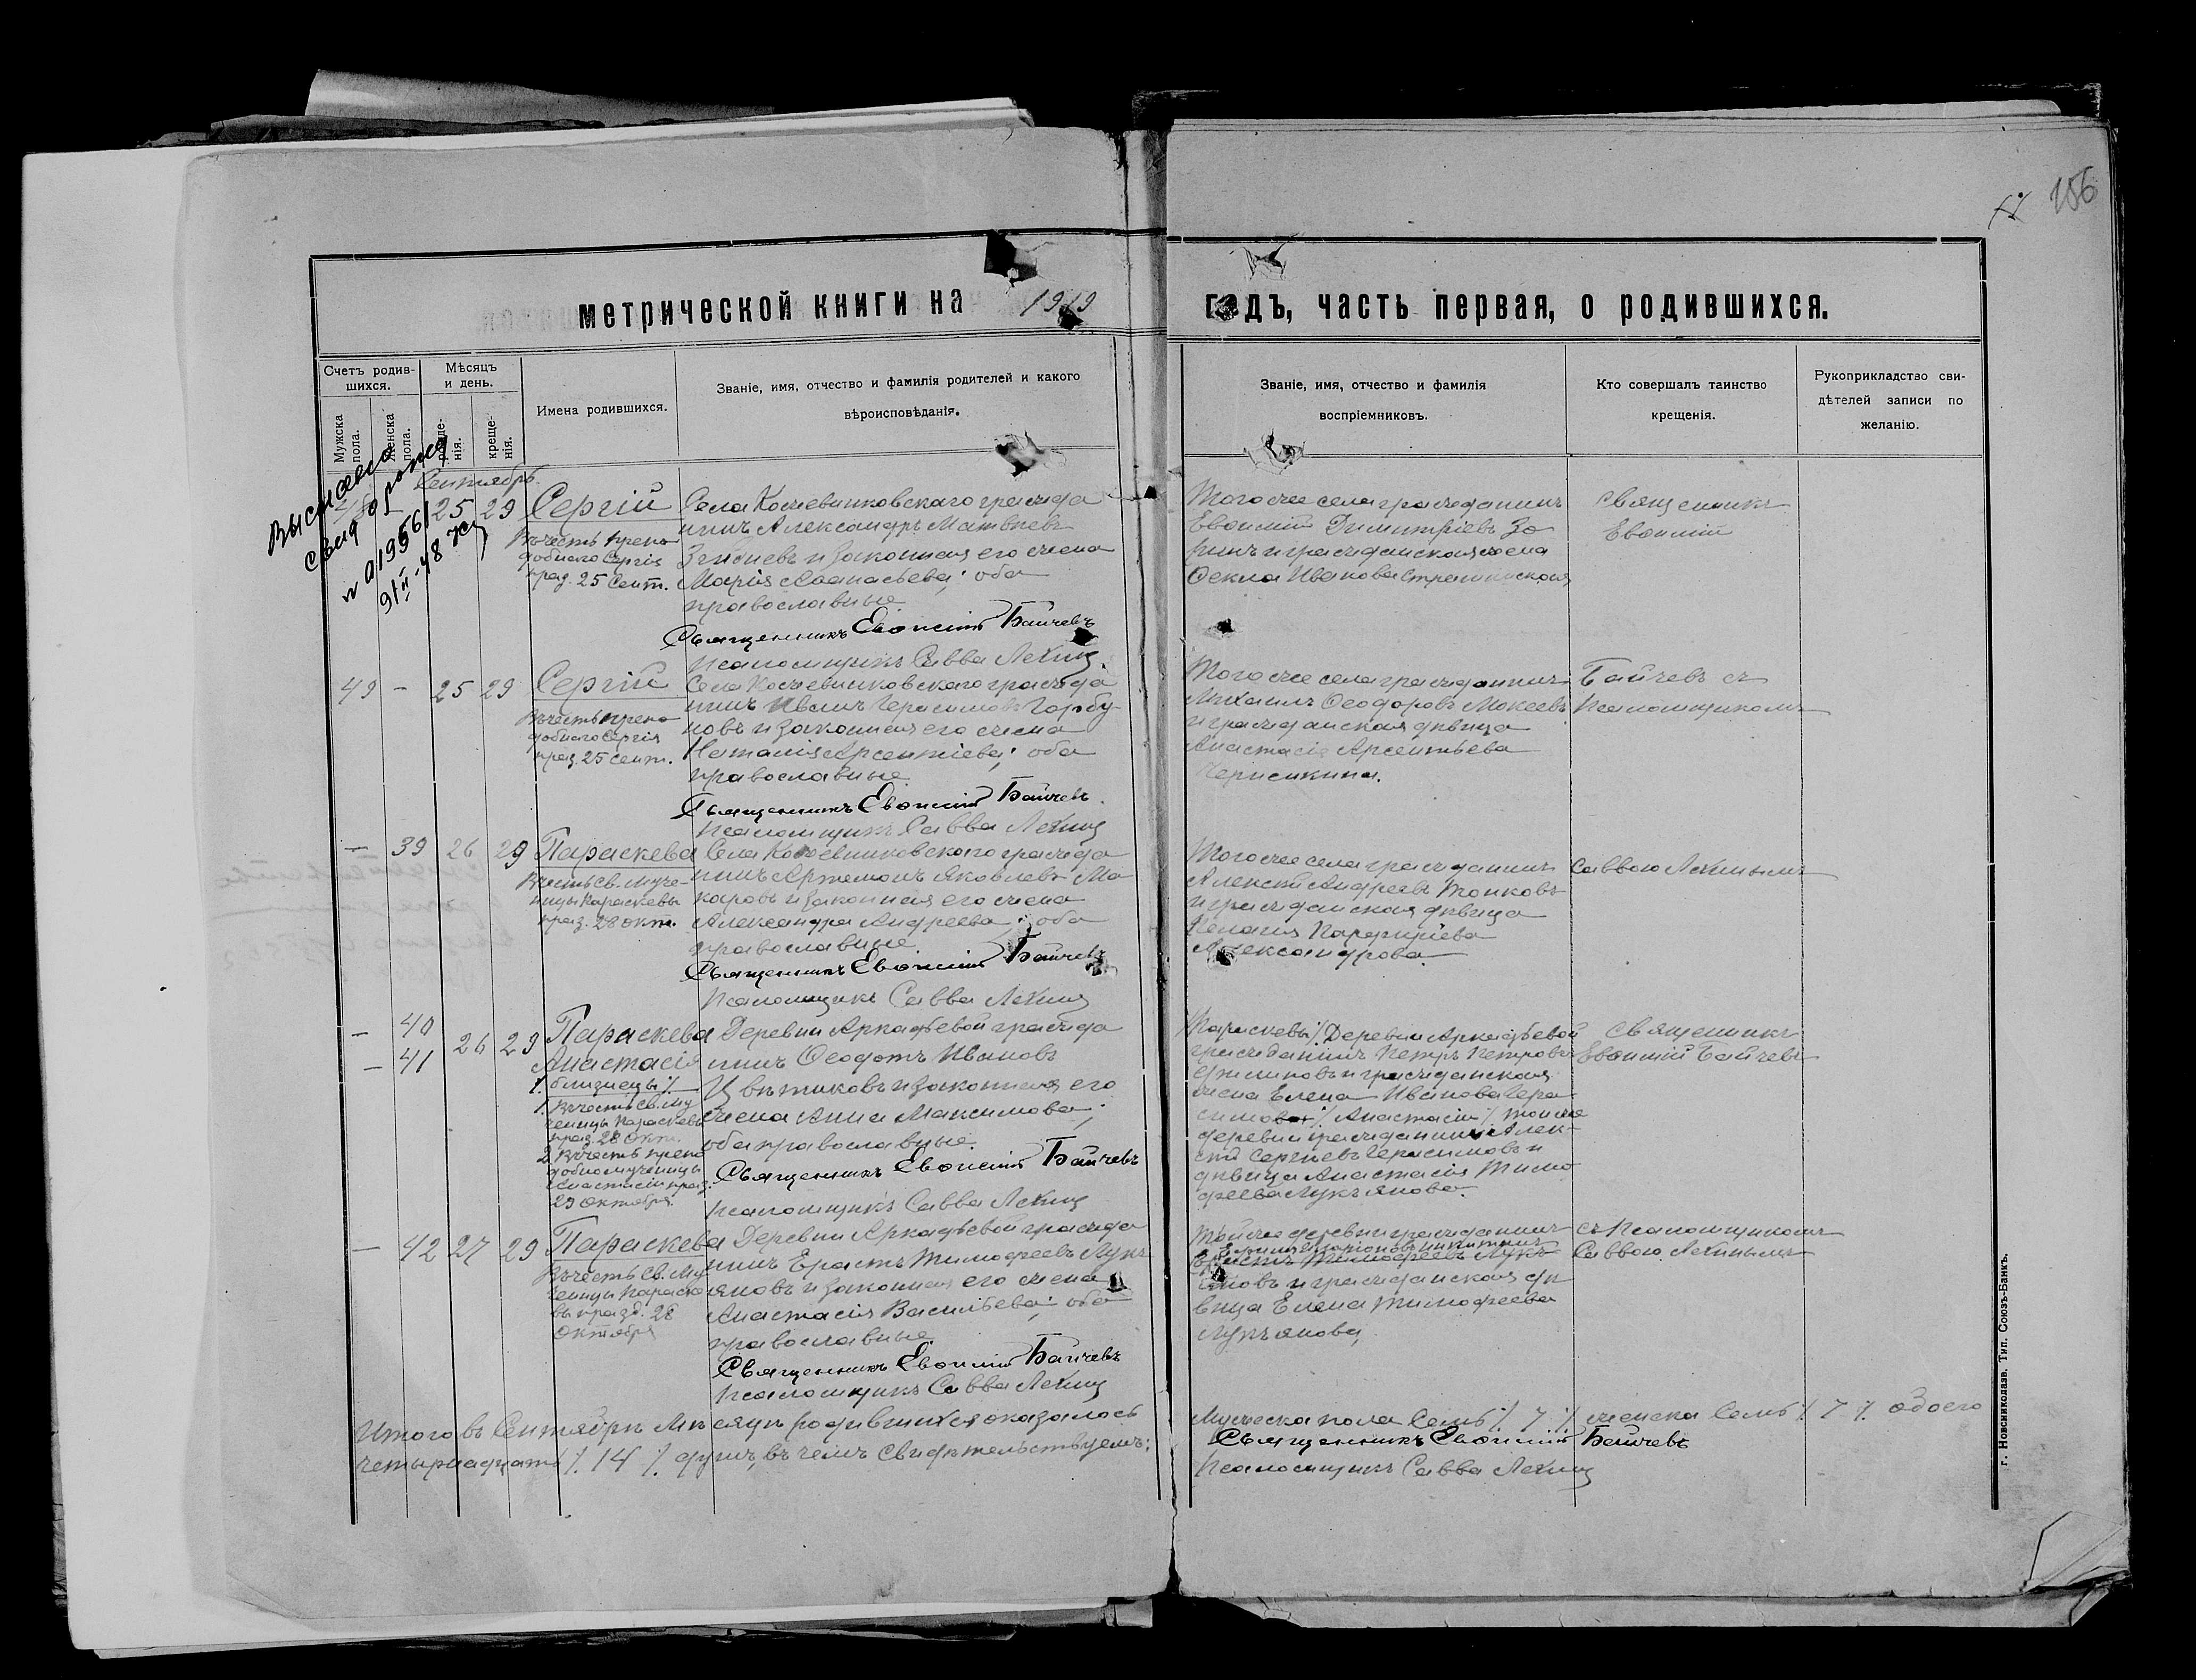 156
метрической книги на 1919 годъ, часть первая, о родившихся.
Счетъ родив-
шихся.
Мѣсяцъ
и день.
Мужска
пола.
Женска
пола.
рожде-
нія.
креще-
нія.
Имена родившихся.
Званіе, имя, отчество и фамилія родителей и какого
вѣроисповѣданія.
Званіе, имя, отчество и фамилія
воспріемниковъ.
Кто совершалъ таинство
крещенія.
Рукоприкладство сви-
дѣтелей записи по
желанію.
Сентябрь
48 25 29
Сергій
Въ честь препо
добнаго Сергія
праз. 25 Сент.
Села Кожевниковскаго гражда
нинъ Александръ Матвѣевъ
и законная его жена
Марія Аѳанасьева; оба
православные
Священникъ Евѳимій Байчевъ
Псаломщикъ Савва Лекинъ
Того же села гражданинъ
Евѳимій Димитріевъ Зо
ринъ и гражданская жена
Ѳекла Иванова
Священникъ
Евѳимій
49 - 25 29
Сергій
Въ честь препо
добнаго Сергія
праз. 25 Сент.
Села Кожевниковскаго гражда
нинъ Иванъ Герасимовъ Горбу-
новъ и законная его жена
Наталія Арсентіева; оба
православные
Священникъ Евѳимій Байчевъ
Псаломщикъ Савва Лекинъ
Того же села гражданинъ
Михаилъ Ѳеодоровъ Мокеевъ
и гражданская дѣвица
Анастасія Арсентьева
Байчевъ съ
Псаломщикомъ
- 39 26 29
Параскева
Въ честь Св. муче-
ницы Параскевы
праз. 28 окт.
Села Кожевниковскаго гражда
нинъ Артемонъ Яковлевъ Ма
каровъ и законная его жена
Александра Андреева; оба
православные
Священникъ Евѳимій Байчевъ
Псаломщикъ Савва Лекинъ
Того же села гражданинъ
Алексѣй Андреевъ Тонковъ
и гражданская дѣвица
Пелагія
Александрова
Саввою Лекинымъ
- 40
- 41
26 29
Параскева
Анастасія
близнецы
1. Въ честь Св. Му
ченицы Параскевы
праз. 28 Окт.
2. Въ честь препо
добномученицы
Анастасіи праз.
29 Октября
Деревни Аркадьевой гражда
нинъ Ѳеодотъ Ивановъ
Цвѣтиковъ и законная его
жена Анна Максимова;
оба православные
Священникъ Евѳимій Байчевъ
Псаломщикъ Савва Лекинъ
Параскевы % Деревни Аркадьевой
гражданинъ Петръ Петровъ
и гражданская
жена Елена Иванова Гера
симова % Анастасіи % той же
деревни гражданинъ Алек-
сѣй Сергѣевъ Герасимовъ и
дѣвица Анастасія Тимо
феева Лукъянова.
Священникъ
Евѳимій Байчевъ
- 42 27 29
Параскева
Въ честь Св. Му
ченицы Параске
вы празд. 28
Октября
Деревни Аркадьевой гражда
нинъ Ерастъ Тимофеевъ Лукъ
яновъ и законная его жена
Анастасія Васильева; оба
православные
Священникъ Евѳимій Байчевъ
Псаломщикъ Савва Лекинъ
Той же деревни гражданинъ
Ерастъ Тимофеевъ Лукъ
яновъ и гражданская дѣ
вица Елена Тимофеева
Лукъянова,
съ Псаломщикомъ
Саввою Лекинымъ
Итого въ Сентябрѣ Мѣсяцѣ родившихся оказалось Мужеска пола Семь % 7 % женска Семь % 7 % обоего
четырнадцать % 14 % душъ, въ чемъ свидѣтельствуемъ:
Священникъ Евѳимій Байчевъ
Псаломщикъ Савва Лекинъ
г. Новониколаев. Тип. Союзъ-Банкъ.